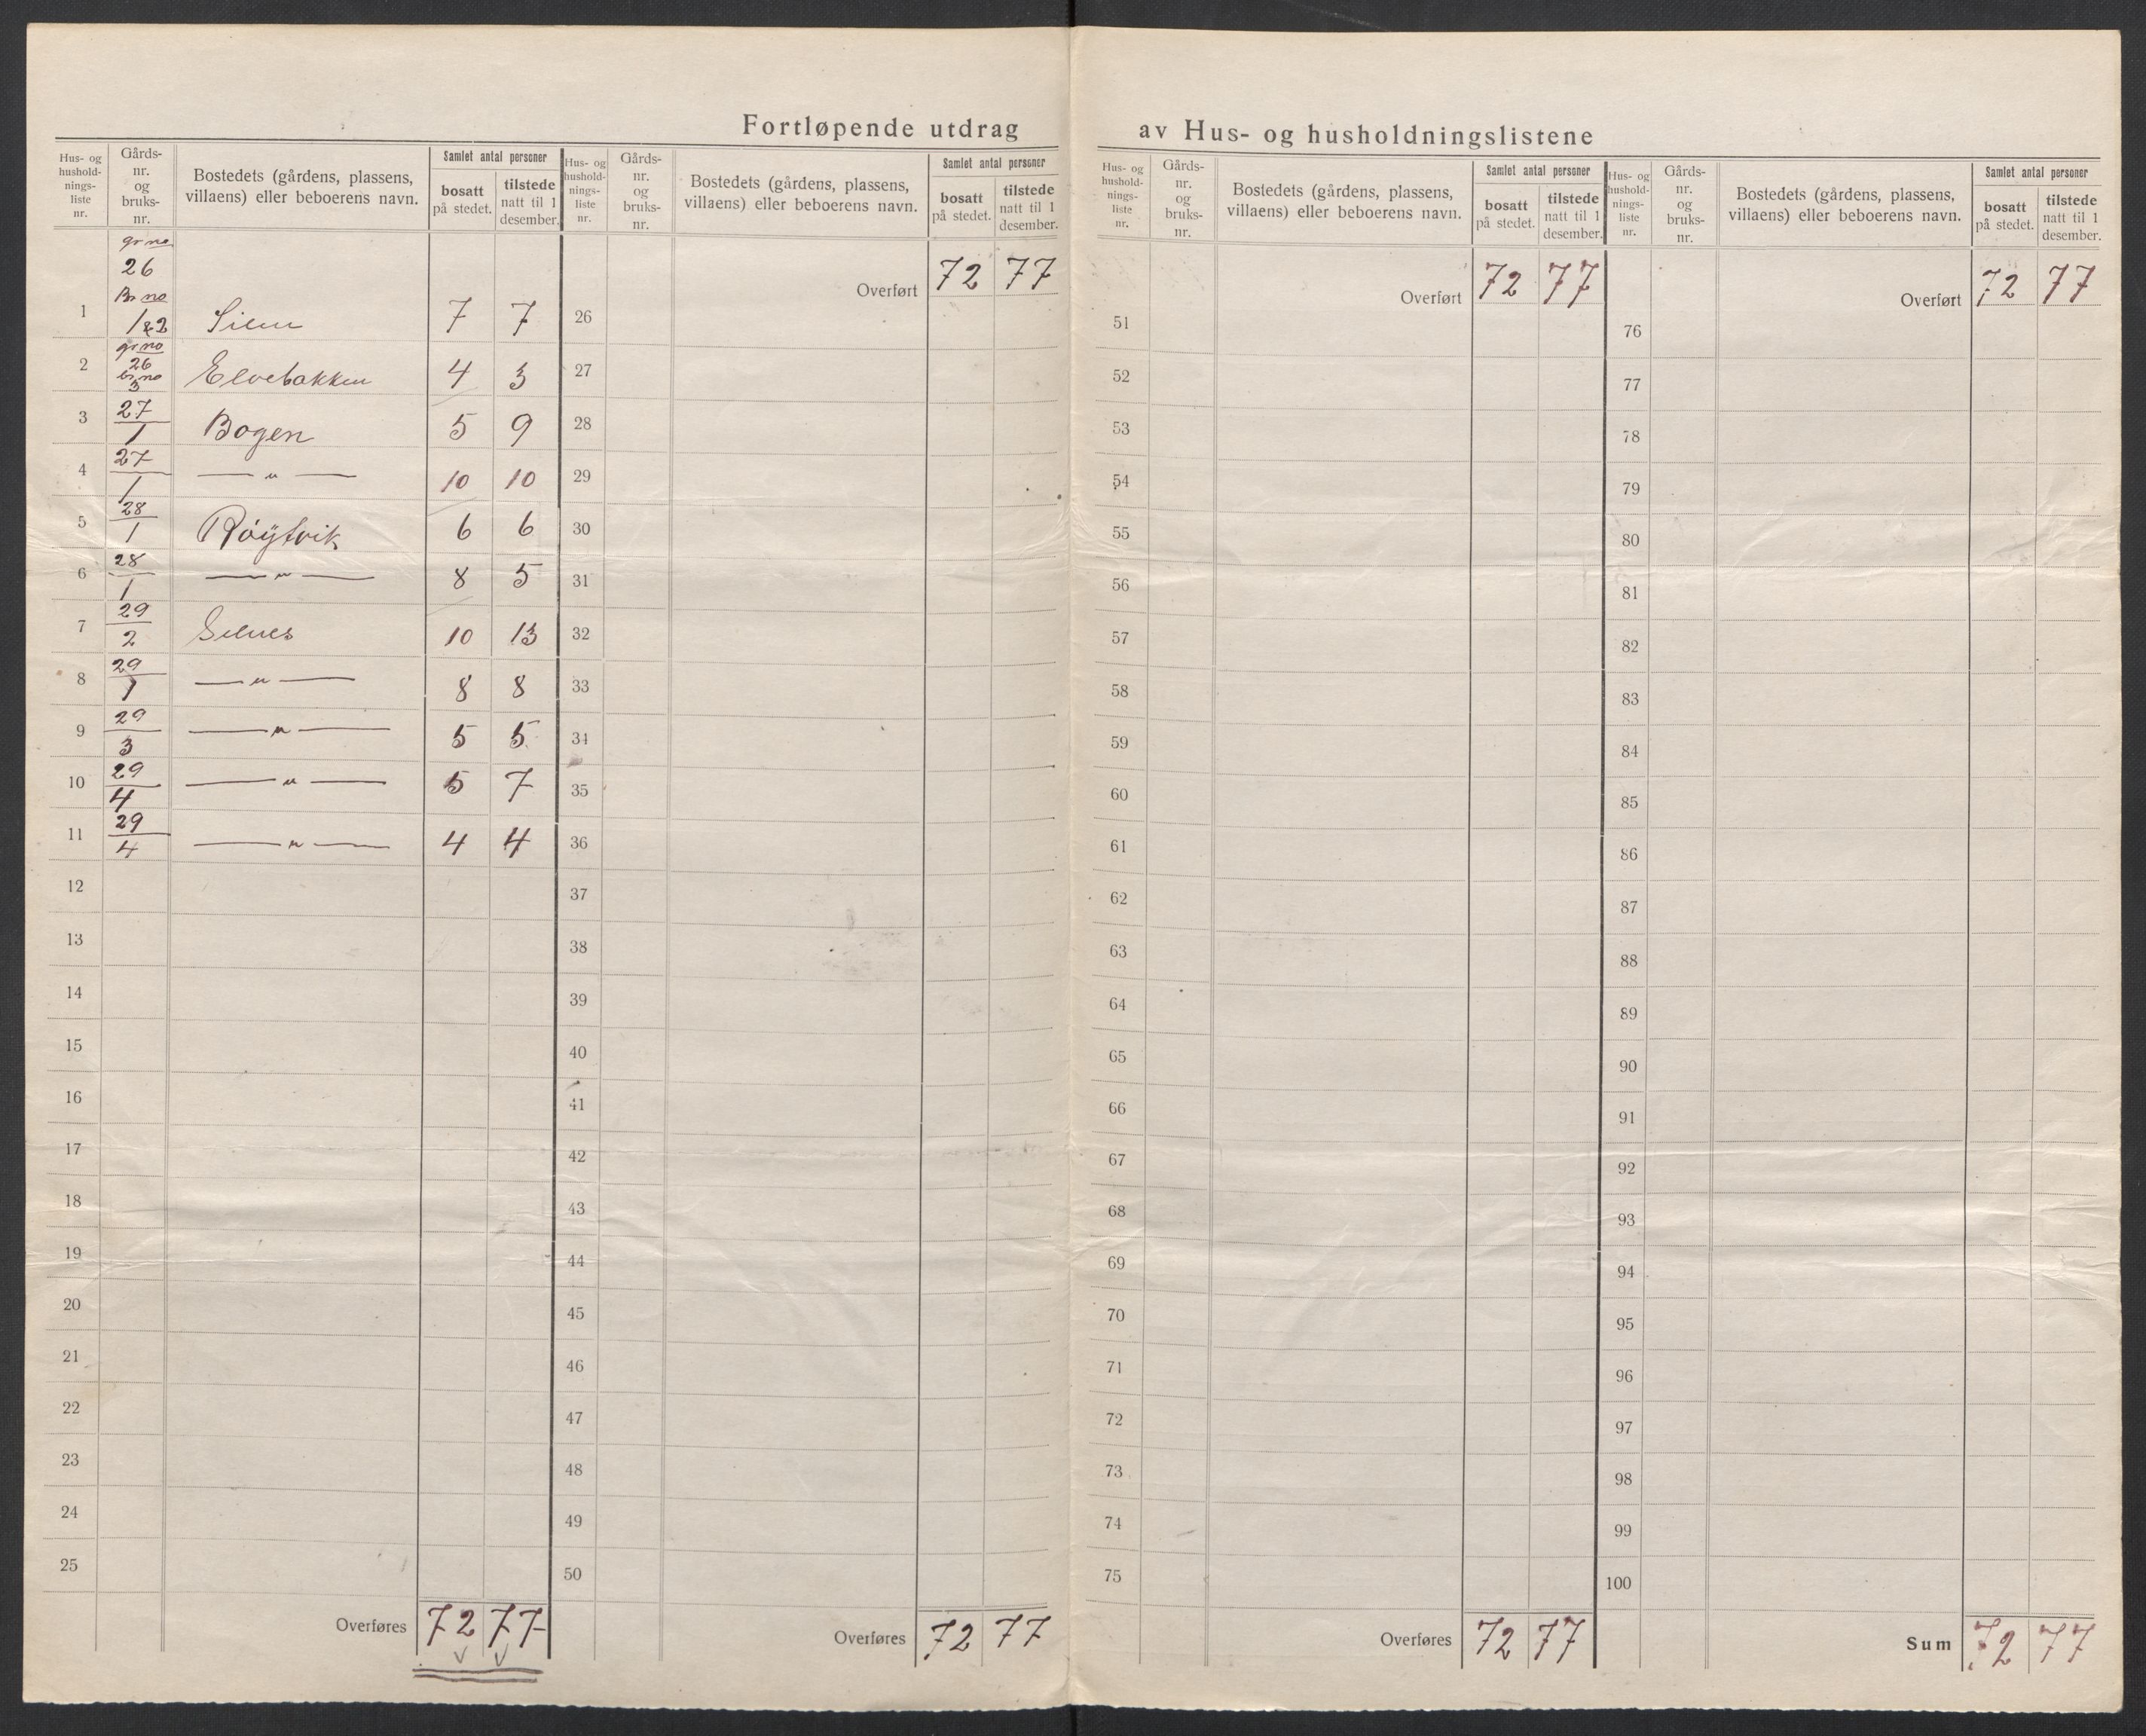 Fortløpende utdrag av Hus- og husholdningslistene
Hus- og husholdnings-liste nr. Gårds-nr. og bruks-nr. Bostedets (gårdens, plassens, villaens) eller beboerens navn. Samlet antal personer bosatt på stedet. tilstede natt til 1 desember.
gr no
26
Br no
1 1&2 7 7
gr no
26
br no
2 3 Elvebakken 4 3
3 27/1 Bogen 5 9
4 27/1 — " — 10 10
5 28/1 Røytvik 6 6
6 28/1 — " — 8 5
7 29/2 Selnes 10 13
8 29/1 — " — 8 8
9 29/3 — " — 5 5
10 29/4 — " — 5 7
11 29/4 — " — 4 4
12
13
14
15
16
17
18
19
20
21
22
23
24
25
Overføres 72 77
Hus- og husholdnings-liste nr. Gårds-nr. og bruks-nr. Bostedets (gårdens, plassens, villaens) eller beboerens navn. Samlet antal personer bosatt på stedet. tilstede natt til 1 desember.
Overført 72 77
26
27
28
29
30
31
32
33
34
35
36
37
38
39
40
41
42
43
44
45
46
47
48
49
50
Overføres 72 77
Hus- og hushold-nings-liste nr. Gårds-nr. og bruks-nr. Bostedets (gårdens, plassens, villaens) eller beboerens navn. Samlet antal personer bosatt på stedet. tilstede natt til 1 desember.
Overført 72 77
51
52
53
54
55
56
57
58
59
60
61
62
63
64
65
66
67
68
69
70
71
72
73
74
75
Overføres 72 77
Hus- og hushold-nings-liste nr. Gårds-nr. og bruks-nr. Bostedets (gårdens, plassens, villaens) eller beboerens navn. Samlet antal personer bosatt på stedet. tilstede natt til 1 desember.
Overført 72 77
76
77
78
79
80
81
82
83
84
85
86
87
88
89
90
91
92
93
94
95
96
97
98
99
100
Sum 72 77